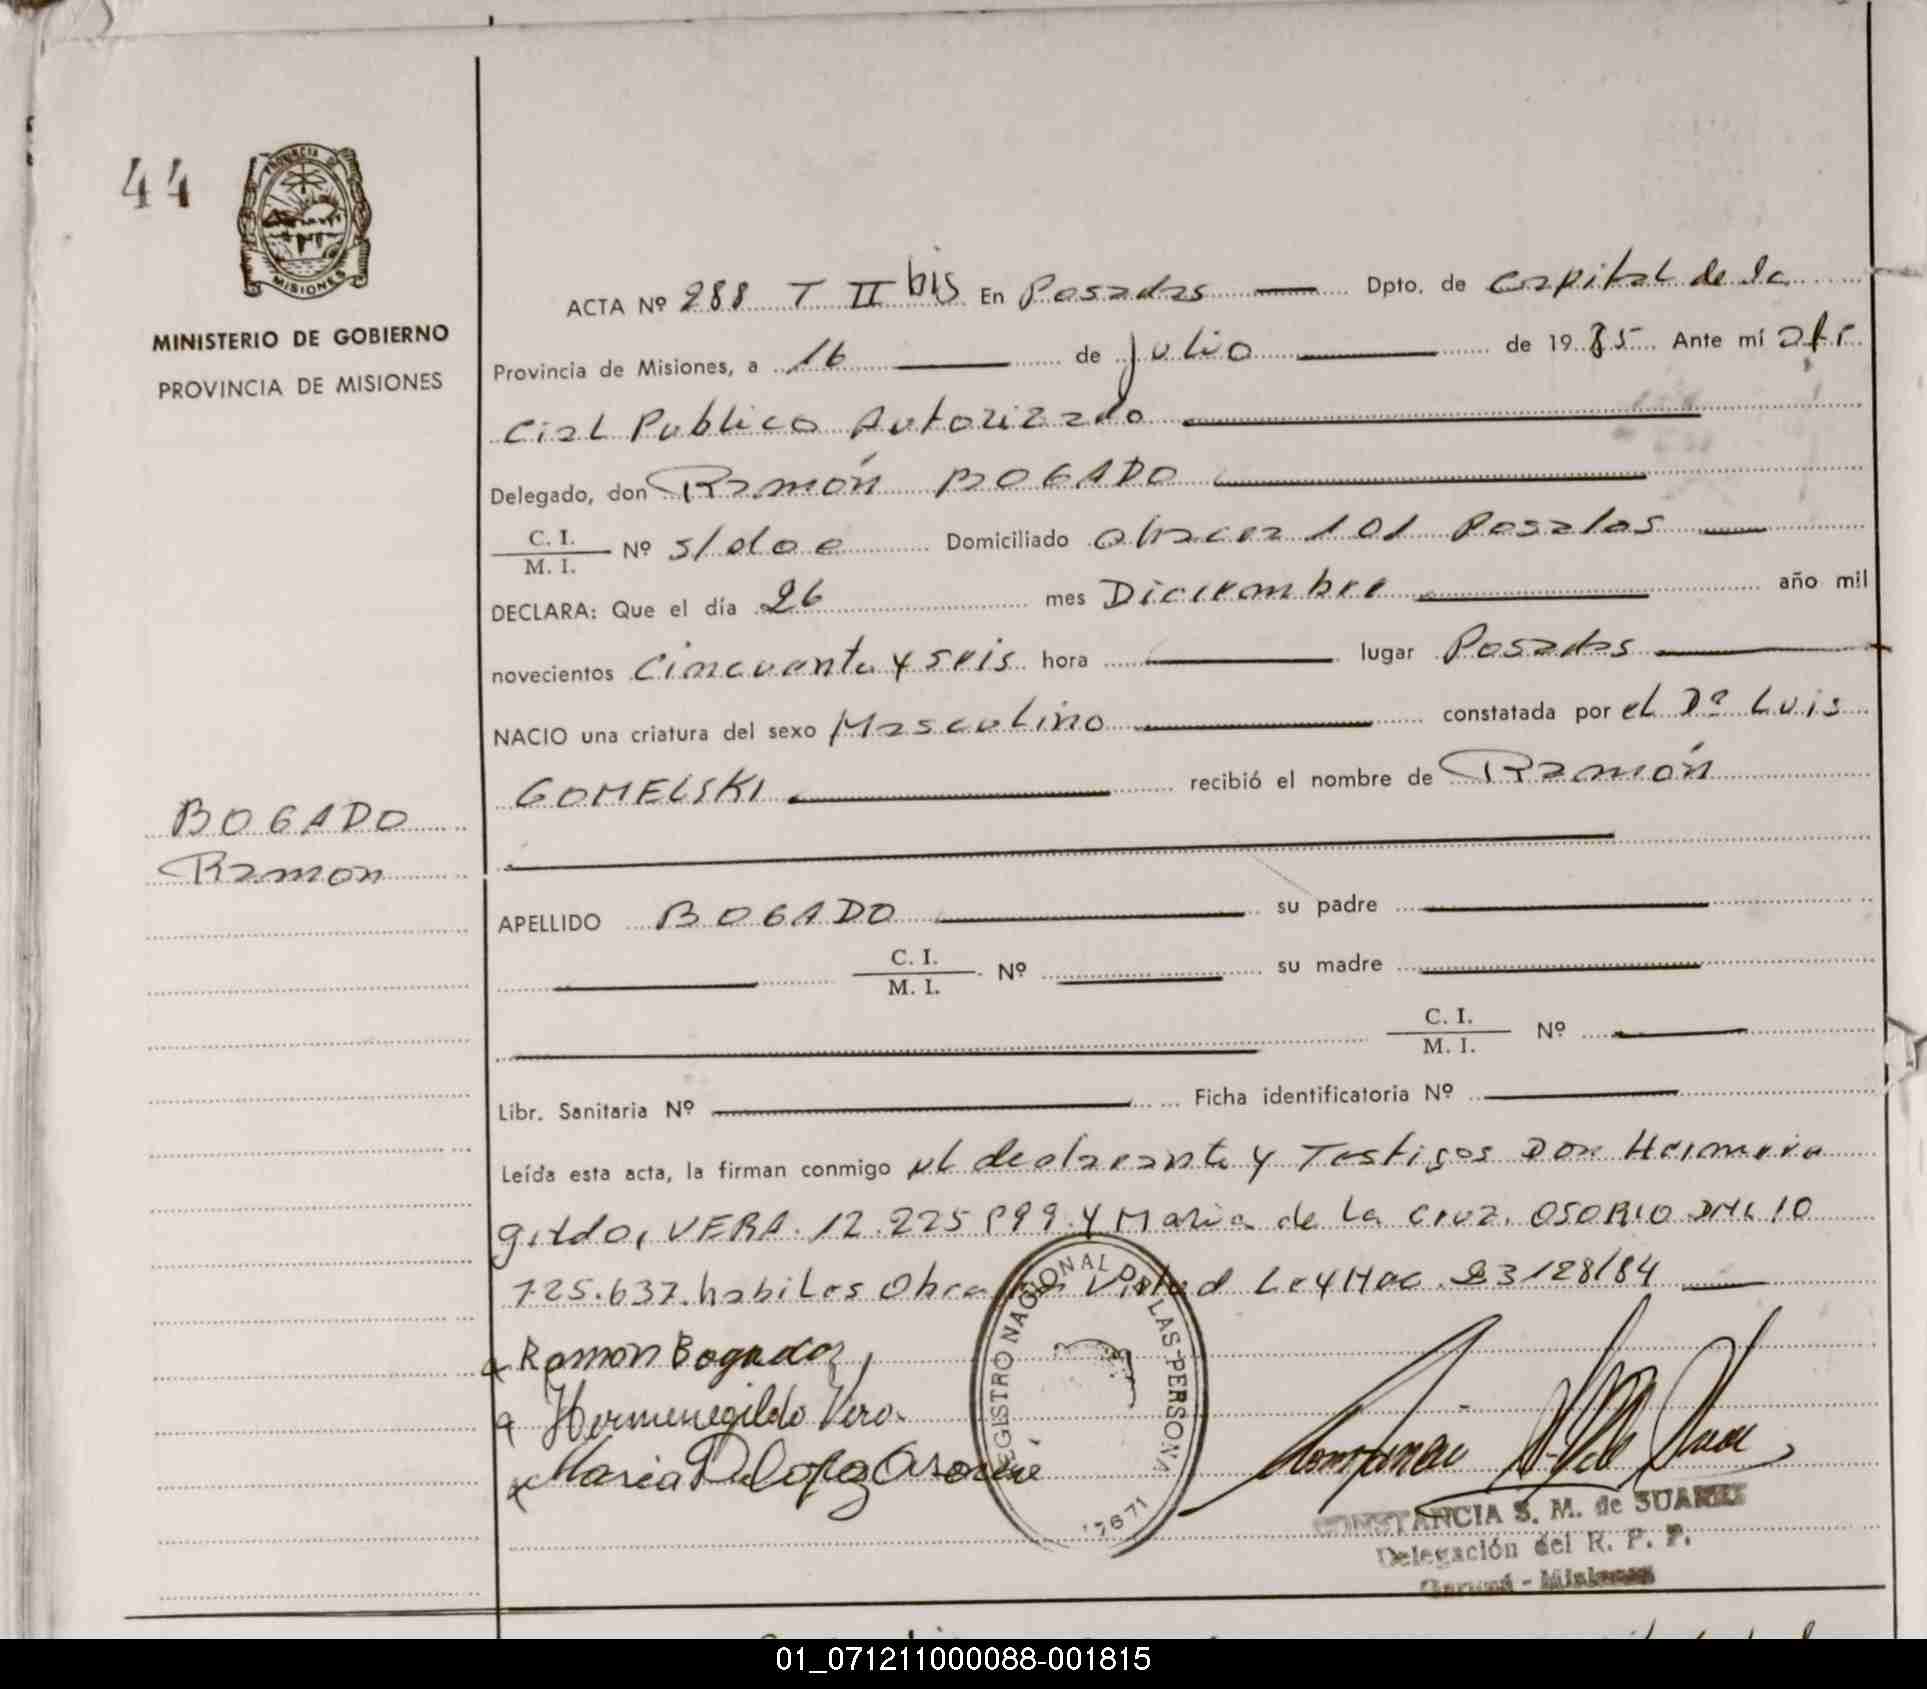 44
PROVINCIA DE
MISIONES
MINISTERIO DE GOBIERNO
PROVINCIA DE MISIONES
ACTA Nº 288 T II bis En Posadas Dpto. de Capital de la
Provincia de Misiones, a 16 de Julio de 1985 Ante mí Ofi
cial Publico Autorizado
Delegado, don Ramón BOGADO
C. I.
M. I. Nº s/doc Domiciliado 101 Posadas
DECLARA: Que el día 26 mes Diciembre año mil
novecientos Cincuenta y seis hora lugar Posadas
NACIO una criatura del sexo Masculino constatada por el Dº Luis
GOMELSKI recibió el nombre de Ramón
BOGADO
Ramon
APELLIDO BOGADO su padre
C. I.
M. I. Nº su madre
C. I.
M. I. Nº
Libr. Sanitaria Nº Ficha identificatoria Nº
Leída esta acta, la firman conmigo el declarante y Testigos Don
gildo, VERA 12.225 899 y Maria de La Cruz. OSORIO DNI 10
725.637. habiles Obra en Virtud Ley Nac. 23128/84
Ramon Bogado
Hermenegildo Vera
Maria
REGISTRO NACIONAL DE LAS PERSONA
17671
CONSTANCIA S. M. de SUAREZ
Delegación del R. P. P.
Garupá - Misiones
01_071211000088-001815